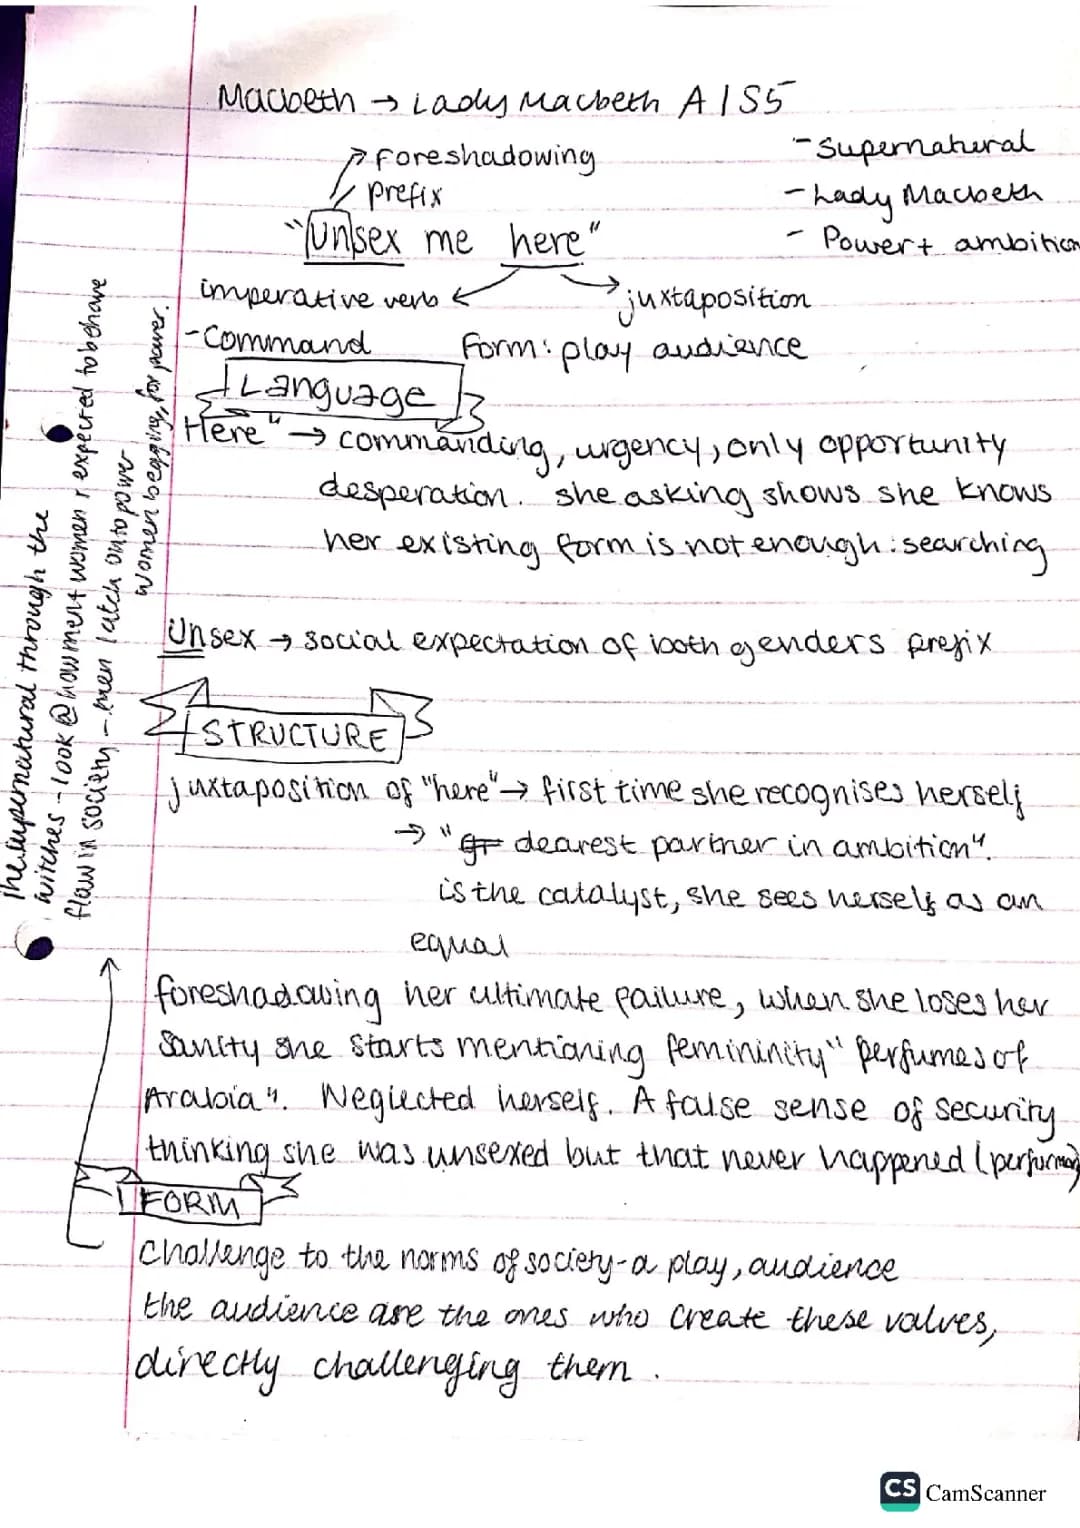 Macbeth → Lady Macbeth A1S5
foreshadowing
prefix
- Supernatural
- Lady Macbeth
- Power + ambition
"Unsex me here"
imperative verb
juxtaposition
- Command
Form: play audience
Language
Here" → commanding, urgency, only opportunity
desperation. she asking shows she knows
her existing form is not enough: searching
Unsex → social expectation of both genders prefix
STRUCTURE
juxtaposition of "here" → first time she recognises herself
→ " dearest partner in ambition".
is the catalyst, she sees herself as an
equal
foreshadowing her ultimate failure, when she loses her
sanity she starts mentioning femininity "perfumes of
Arabia". Neglected herself. A false sense of security
thinking she was unsexed but that never happened (
FORM
challenge to the norms of society - a play, audience
the audience are the ones who create these values,
directly challenging them.
The supernatural through the
witches - look @ how men + women r expected to behave
flaw in society - men latch onto power
women begging, for power.
CS CamScanner